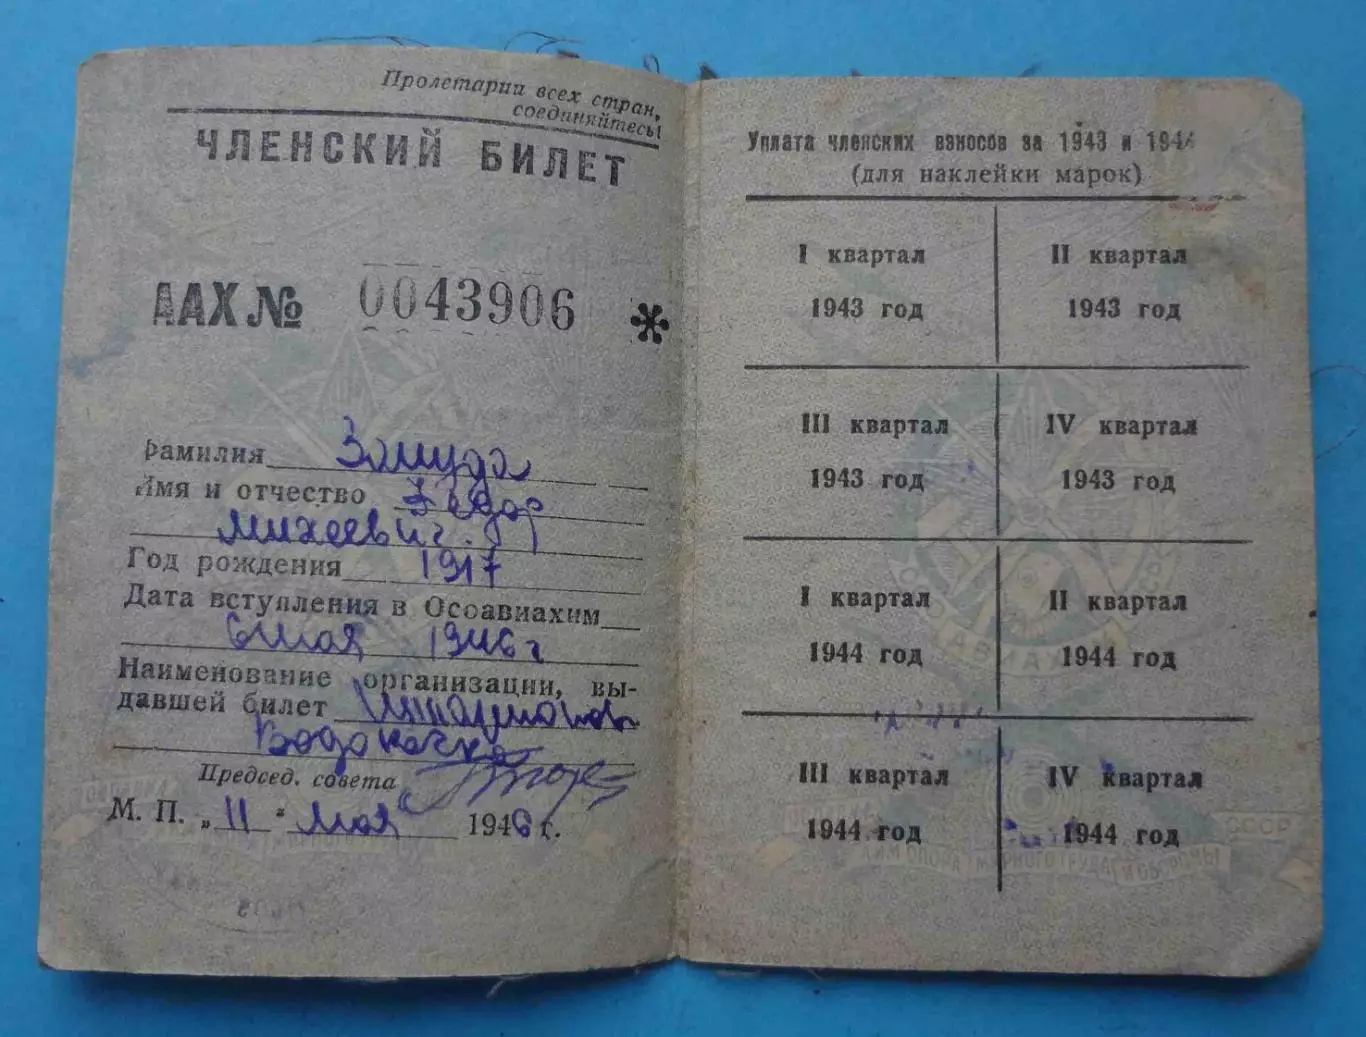 Пролетарии всех стран,
соединяйтесь!
ЧЛЕНСКИЙ БИЛЕТ
ААХ № 0043906 *
Фамилия
Имя и отчество Федор
Михеевич
Год рождения 1917
Дата вступления в Осоавиахим
6 мая 1946 г
Наименование организации, вы-
давшей билет
Водокачка
Председ. совета
М. П. „11“ мая 1946 г.
Уплата членских взносов за 1943 и 1944
(для наклейки марок)
I квартал II квартал
1943 год 1943 год
III квартал IV квартал
1943 год 1943 год
I квартал II квартал
1944 год 1944 год
III квартал IV квартал
1944 год 1944 год